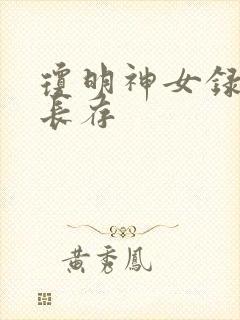 琼明神女録
長存
黃秀鳳